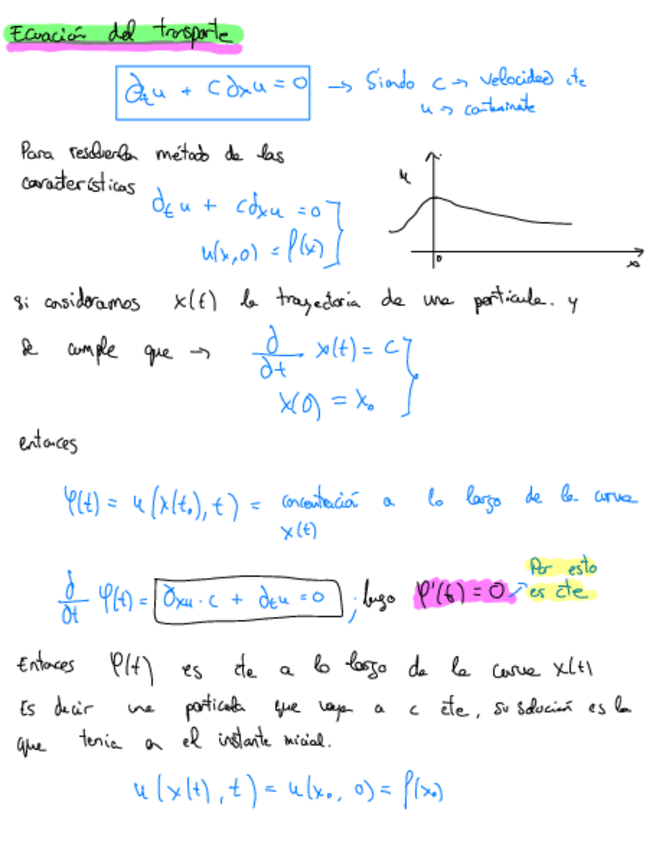 Ecuación del transporte
∂ₜu + c∂ₓu = 0 → Siendo c → velocidad cte
u → contaminate
Para resolverla método de las
características
∂ₜu + c∂ₓu = 0
u(x,0) = f(x)
u
0
x
si consideramos x(t) la trayectoria de una partícula. y
se cumple que → ∂/∂t x(t) = c
x(0) = x₀
entonces
φ(t) = u(x(t₀), t) = concentración a lo largo de la curva
x(t)
∂/∂t φ(t) = ∂ₓu · c + ∂ₜu = 0 ; luego φ'(t) = 0 → Por esto
es cte
Entonces φ(t) es cte a lo largo de la curva x(t)
Es decir una partícula que vaya a c cte, su solución es la
que tenía en el instante inicial.
u(x(t), t) = u(x₀, 0) = f(x₀)